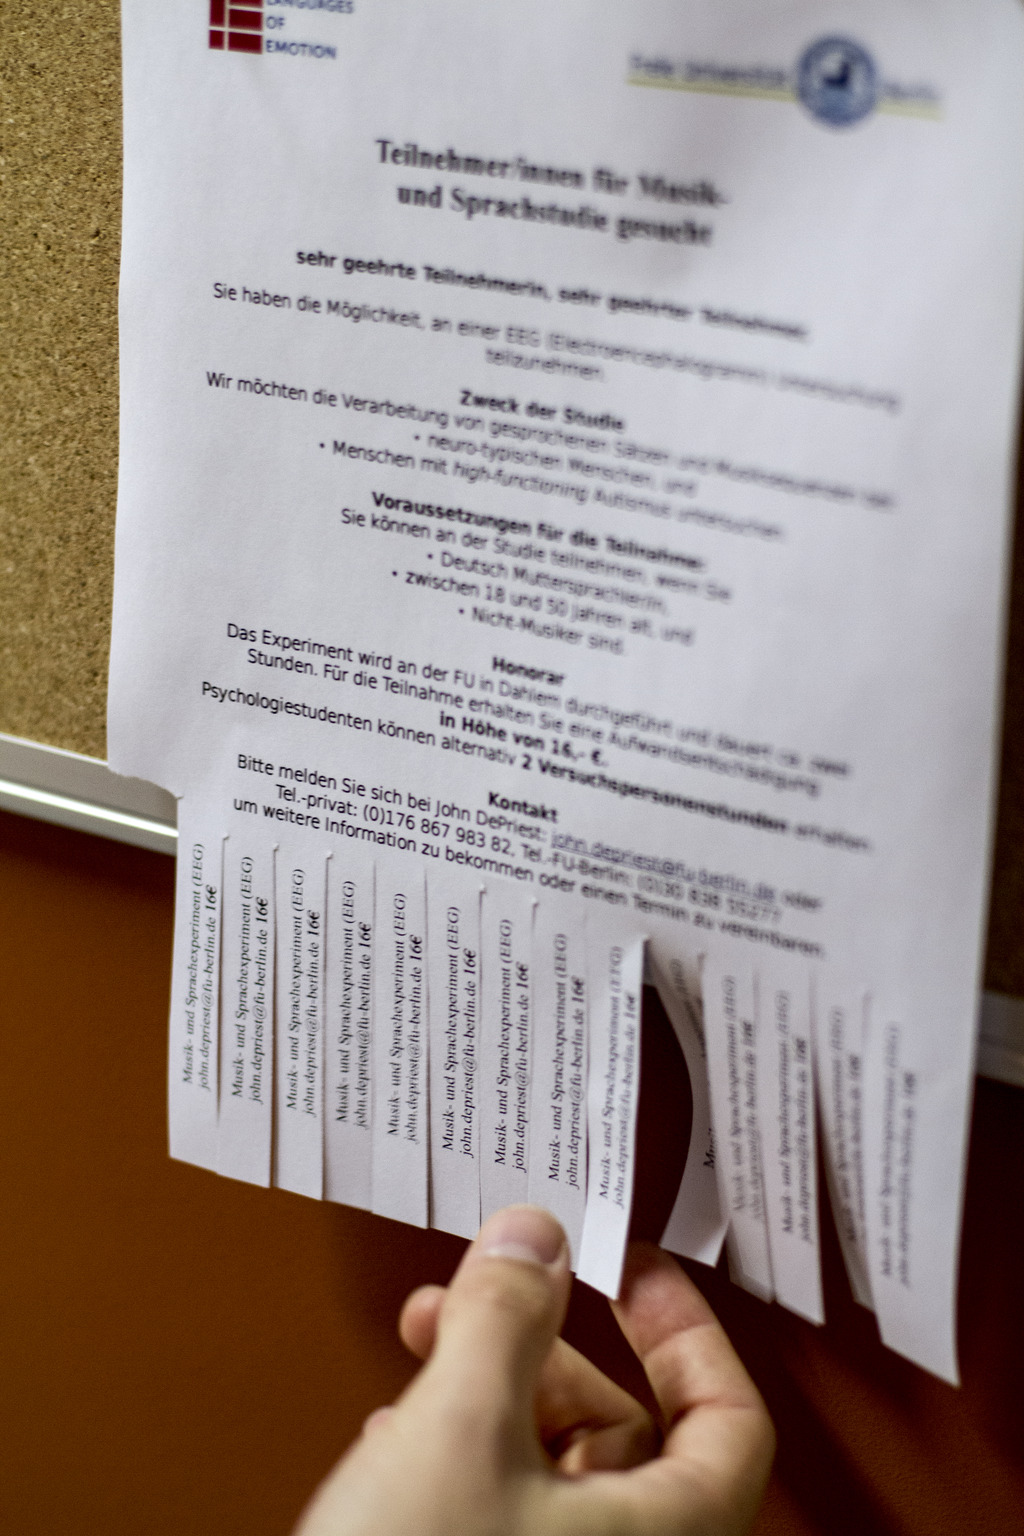 LANGUAGES
OF
EMOTION
Freie Universität Berlin
Teilnehmer/innen für Musik-
und Sprachstudie gesucht
sehr geehrte Teilnehmerin, sehr geehrter Teilnehmer,
Sie haben die Möglichkeit, an einer EEG (Electroencephalogramm) Untersuchung
teilzunehmen.
Zweck der Studie
Wir möchten die Verarbeitung von gesprochenen Sätzen und Musiksequenzen bei
• neuro-typischen Menschen, und
• Menschen mit high-functioning Autismus untersuchen.
Voraussetzungen für die Teilnahme:
Sie können an der Studie teilnehmen, wenn Sie
• Deutsch MuttersprachlerIn,
• zwischen 18 und 50 Jahren alt, und
• Nicht-Musiker sind.
Honorar
Das Experiment wird an der FU in Dahlem durchgeführt und dauert ca. zwei
Stunden. Für die Teilnahme erhalten Sie eine Aufwandsentschädigung
in Höhe von 16,- €.
Psychologiestudenten können alternativ 2 Versuchspersonenstunden erhalten.
Kontakt
Bitte melden Sie sich bei John DePriest: john.depriest@fu-berlin.de oder
Tel.-privat: (0)176 867 983 82, Tel.-FU-Berlin: (0)30 838
um weitere Information zu bekommen oder einen Termin zu vereinbaren.
Musik- und Sprachexperiment (EEG)
john.depriest@fu-berlin.de 16€
Musik- und Sprachexperiment (EEG)
john.depriest@fu-berlin.de 16€
Musik- und Sprachexperiment (EEG)
john.depriest@fu-berlin.de 16€
Musik- und Sprachexperiment (EEG)
john.depriest@fu-berlin.de 16€
Musik- und Sprachexperiment (EEG)
john.depriest@fu-berlin.de 16€
Musik- und Sprachexperiment (EEG)
john.depriest@fu-berlin.de 16€
Musik- und Sprachexperiment (EEG)
john.depriest@fu-berlin.de 16€
Musik- und Sprachexperiment (EEG)
john.depriest@fu-berlin.de 16€
Musik- und Sprachexperiment (EEG)
john.depriest@fu-berlin.de 16€
Musik- und Sprachexperiment (EEG)
john.depriest@fu-berlin.de 16€
Musik- und Sprachexperiment (EEG)
john.depriest@fu-berlin.de 16€
Musik- und Sprachexperiment (EEG)
john.depriest@fu-berlin.de 16€